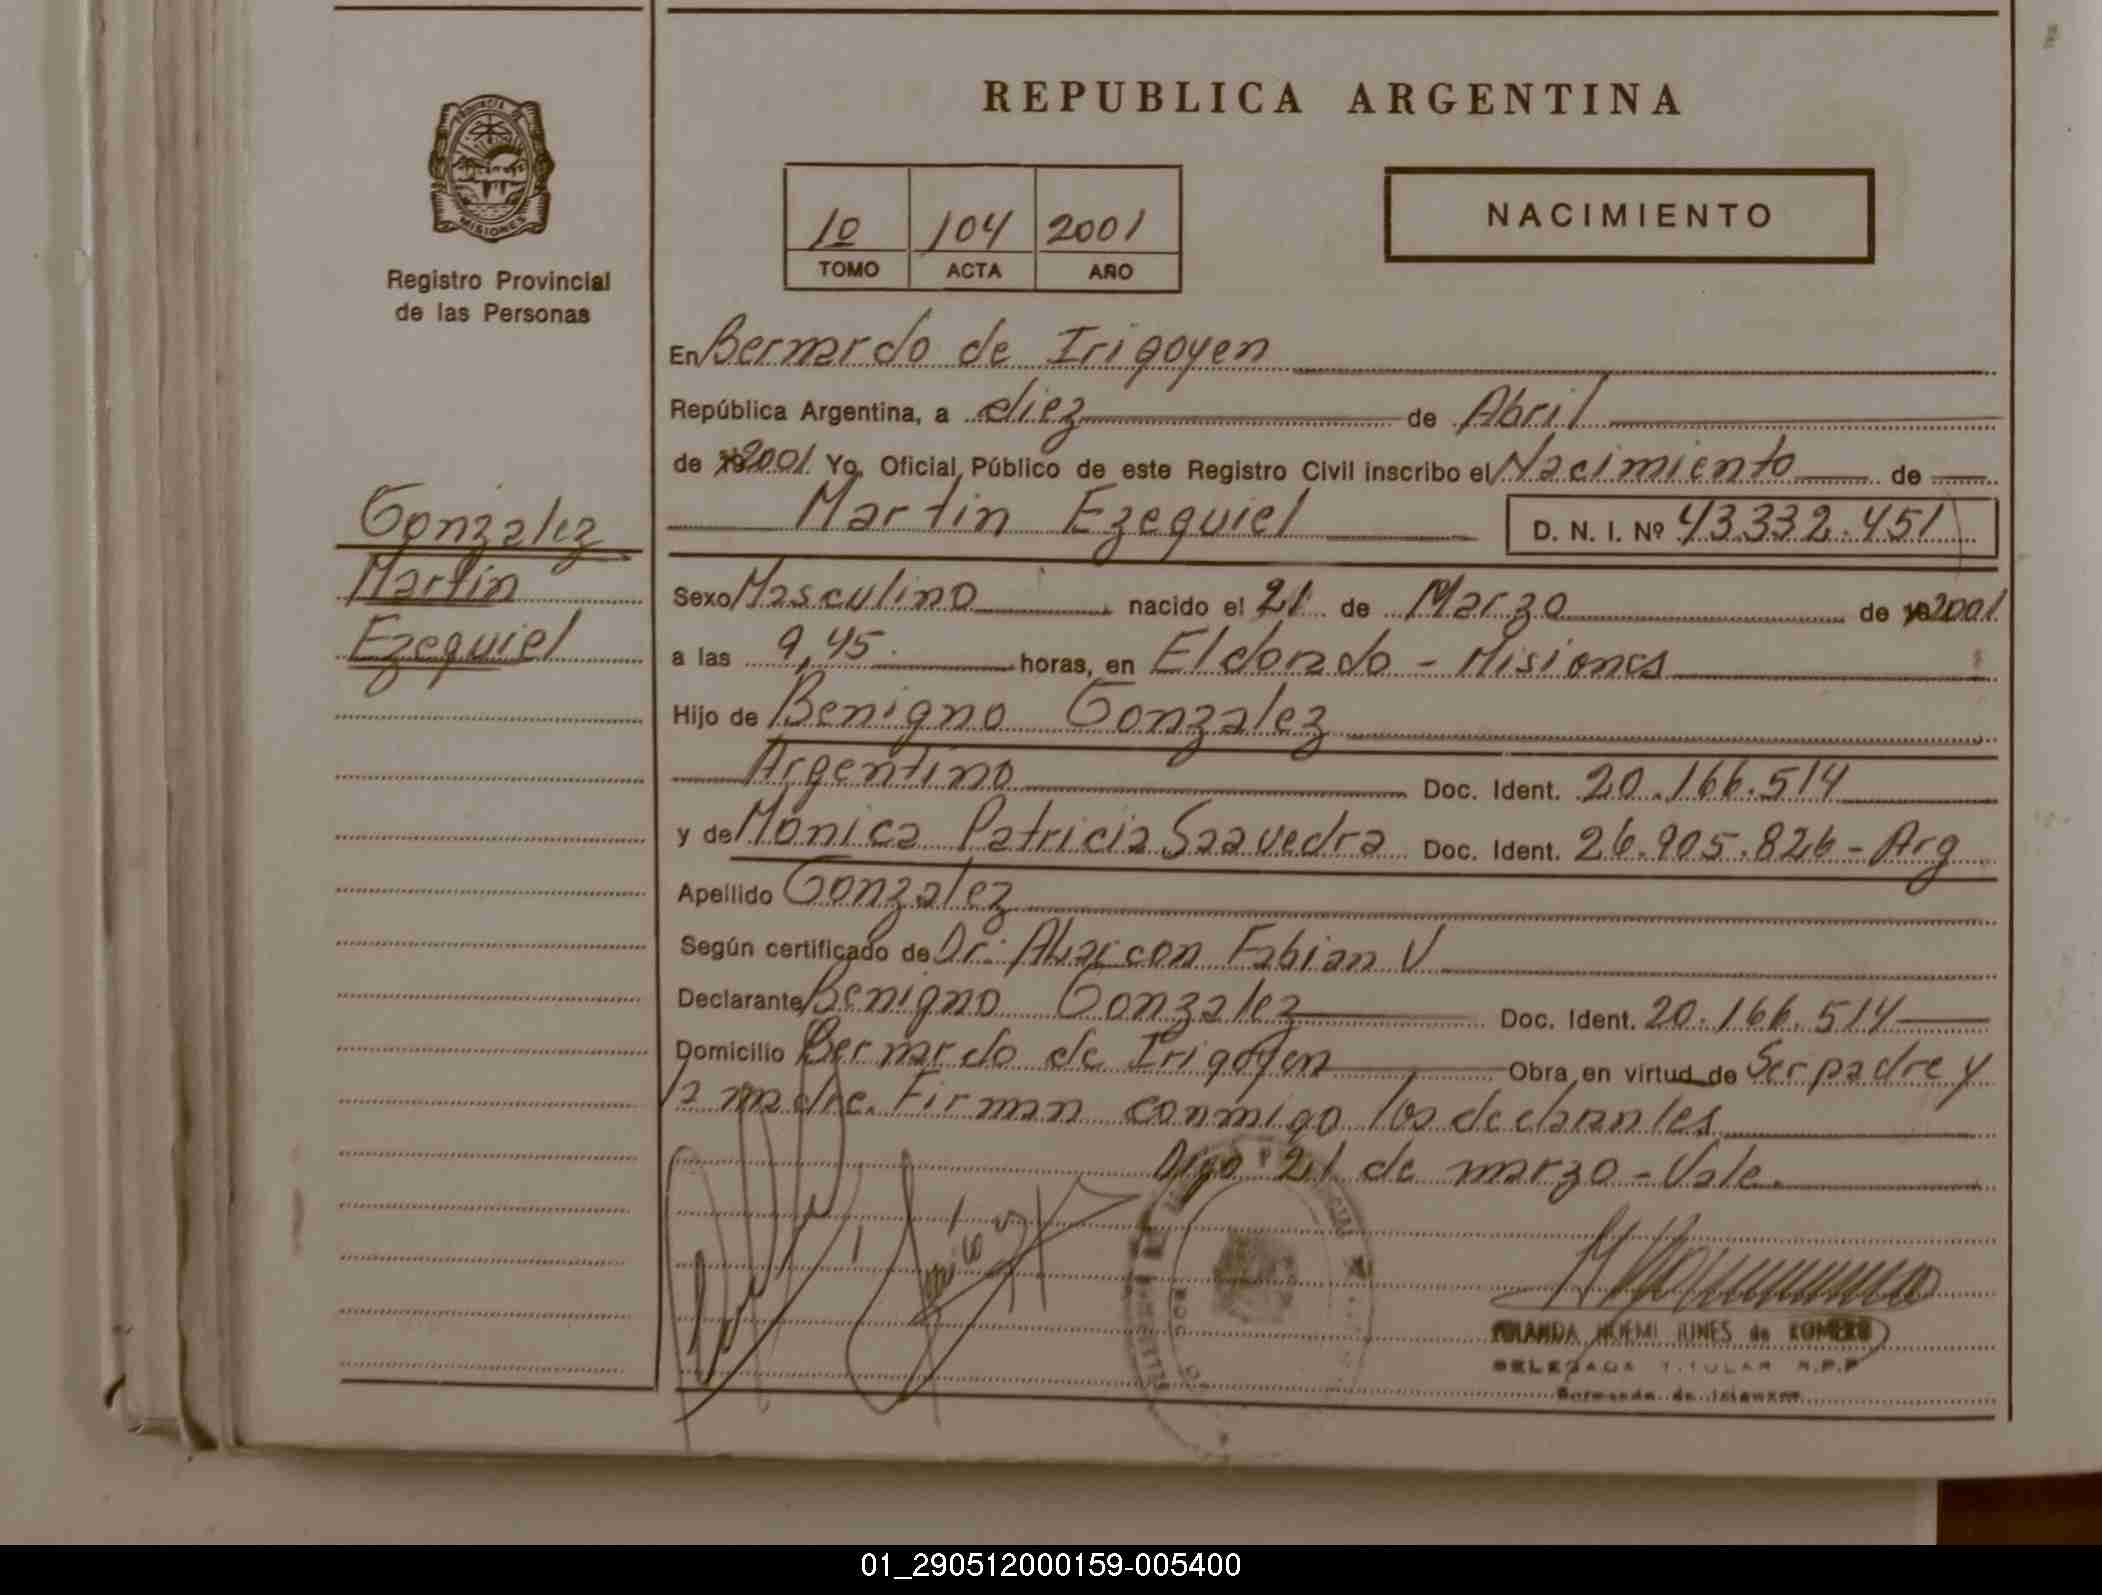 REPUBLICA ARGENTINA
PROVINCIA DE
MISIONES
Registro Provincial
de las Personas
10 104 2001
TOMO ACTA AÑO
NACIMIENTO
En Bernardo de Irigoyen
República Argentina, a diez de Abril
de 2001 Yo, Oficial Público de este Registro Civil inscribo el Nacimiento de
Martin Ezequiel D. N. I. Nº 43.332.451
Gonzalez
Martin
Ezequiel
Sexo Masculino nacido el 21 de Marzo de 2001
a las 9,45 horas, en Eldorado - Misiones
Hijo de Benigno Gonzalez
Argentino Doc. Ident. 20.166.514
y de Monica Patricia Saavedra Doc. Ident. 26.905.826 - Arg
Apellido Gonzalez
Según certificado de Dr: Fabian V
Declarante Benigno Gonzalez Doc. Ident. 20.166.514
Domicilio Bernardo de Irigoyen Obra en virtud de Ser padre y
la madre. Firman conmigo los declarantes
Digo 21 de marzo - Vale.
NOEMI de ROMERO
DELEGADA TITULAR R.P.P
Bernardo de Irigoyen
01_290512000159-005400